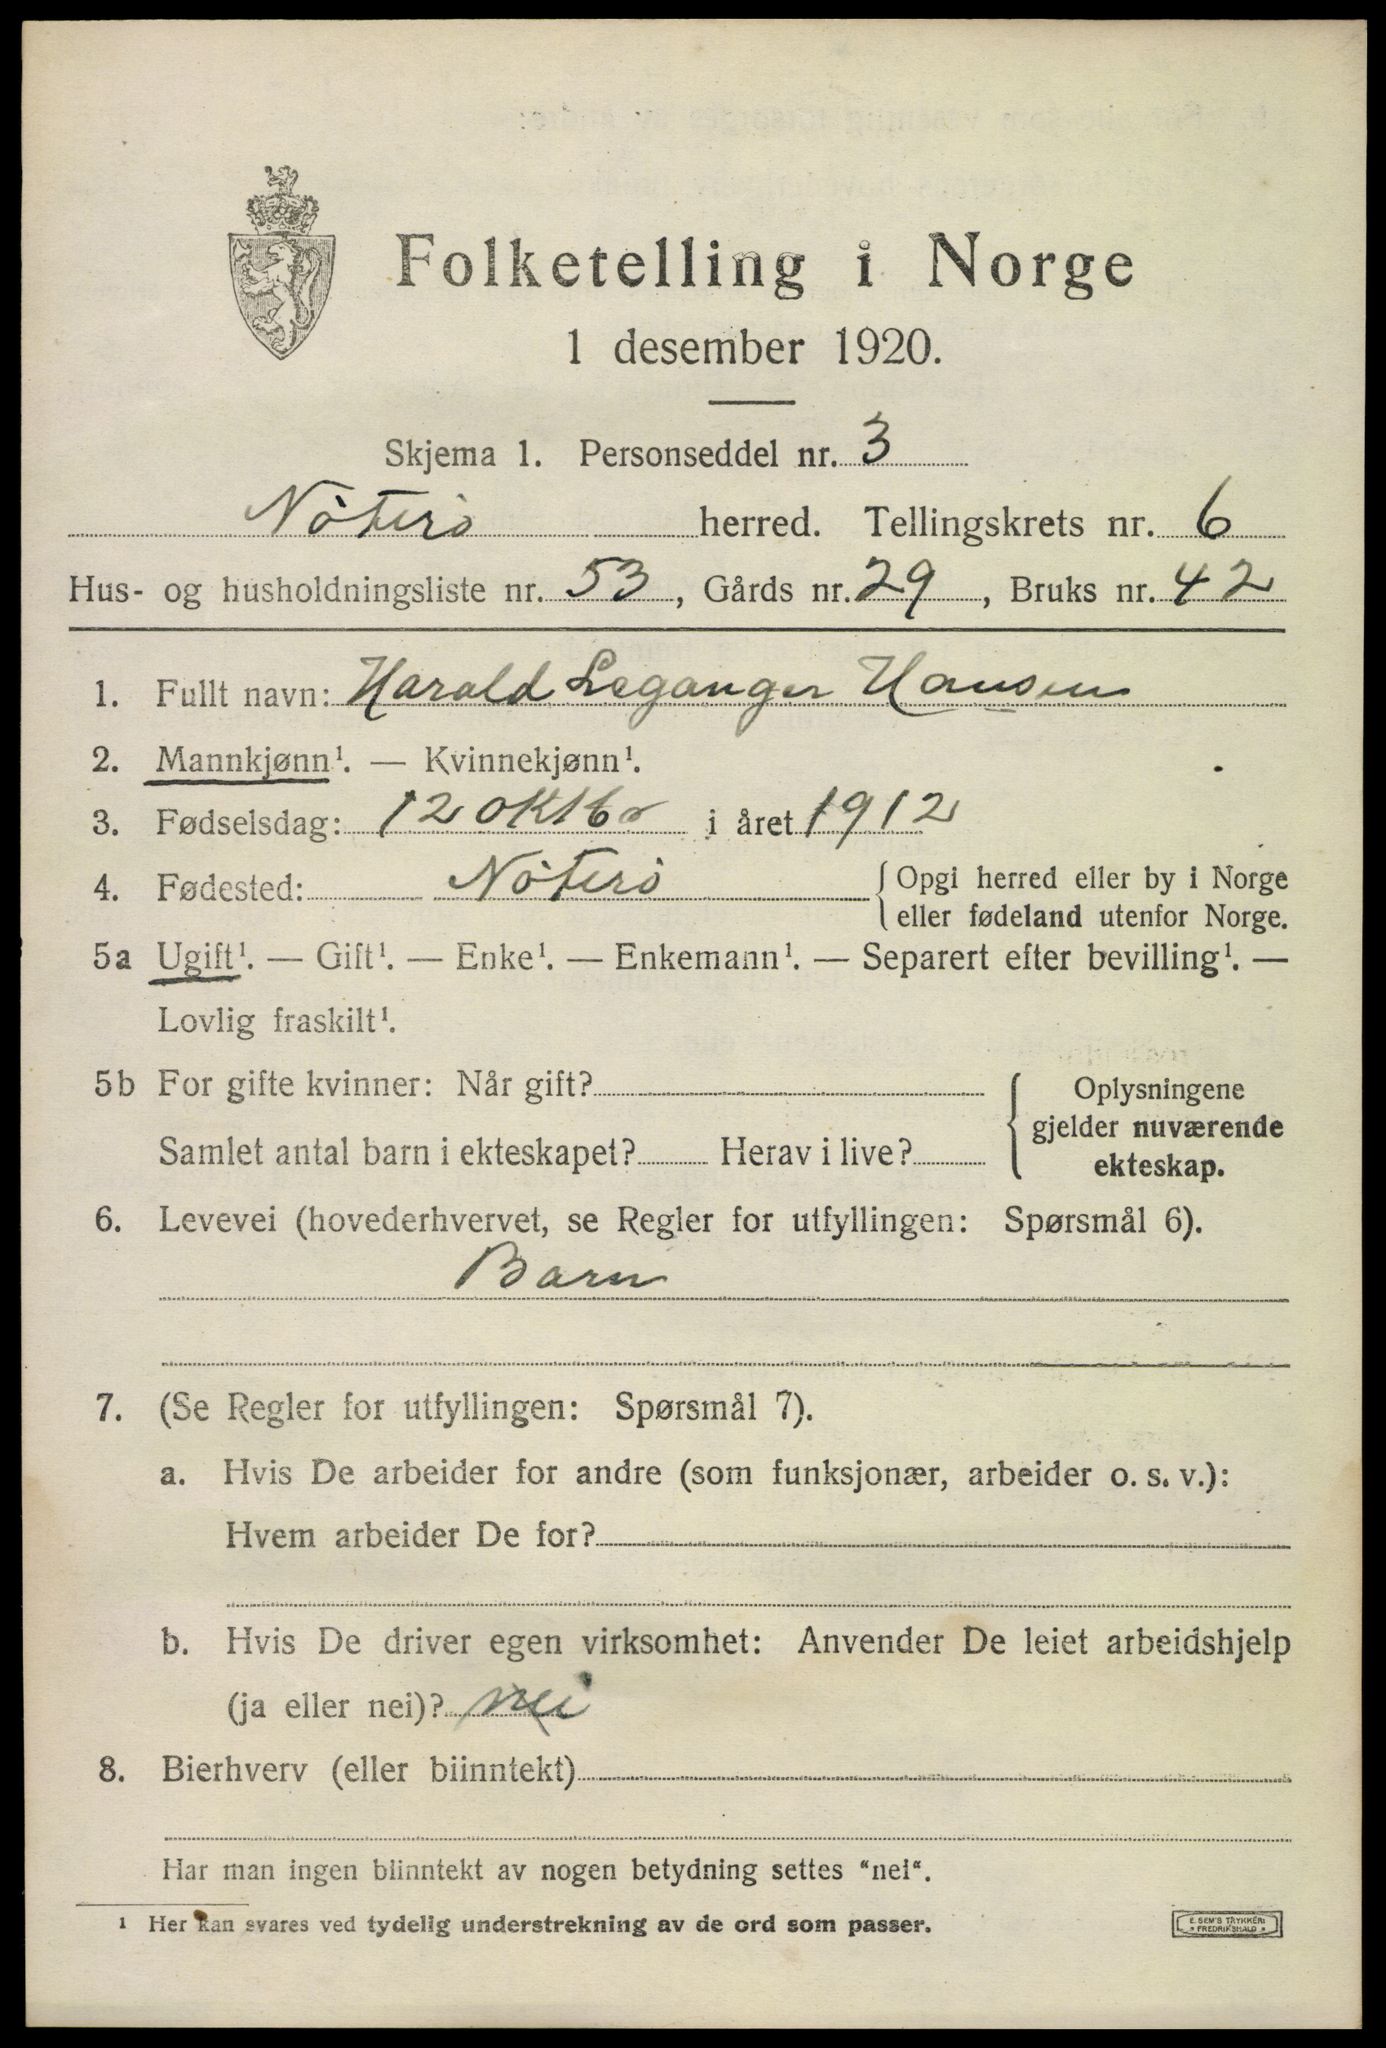 Folketelling i Norge
1 desember 1920.
Skjema 1. Personseddel nr. 3
Nöterö herred. Tellingskrets nr. 6
Hus- og husholdningsliste nr. 53, Gårds nr. 29, Bruks nr. 42
1. Fullt navn: Harald Leganger Hansen
2. Mannkjønn¹. — Kvinnekjønn¹.
3. Fødselsdag: 12 oktbr i året 1912
4. Fødested: Nöterö { Opgi herred eller by i Norge
eller fødeland utenfor Norge.
5a Ugift¹. — Gift¹. — Enke¹. — Enkemann¹. — Separert efter bevilling¹. —
Lovlig fraskilt¹.
5b For gifte kvinner: Når gift?
Samlet antal barn i ekteskapet? Herav i live?
{ Oplysningene
gjelder nuværende
ekteskap.
6. Levevei (hovederhvervet, se Regler for utfyllingen: Spørsmål 6).
Barn
7. (Se Regler for utfyllingen: Spørsmål 7).
a. Hvis De arbeider for andre (som funksjonær, arbeider o. s. v.):
Hvem arbeider De for?
b. Hvis De driver egen virksomhet: Anvender De leiet arbeidshjelp
(ja eller nei)? nei
8. Bierhverv (eller biinntekt)
Har man ingen biinntekt av nogen betydning settes "nei".
¹ Her kan svares ved tydelig understrekning av de ord som passer.
E. SEM'S TRYKKERI
• FREDRIKSHALD •